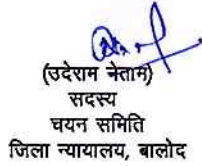 (उदेराम नेताम)
सदस्य
चयन समिति
जिला न्यायालय, बालोद